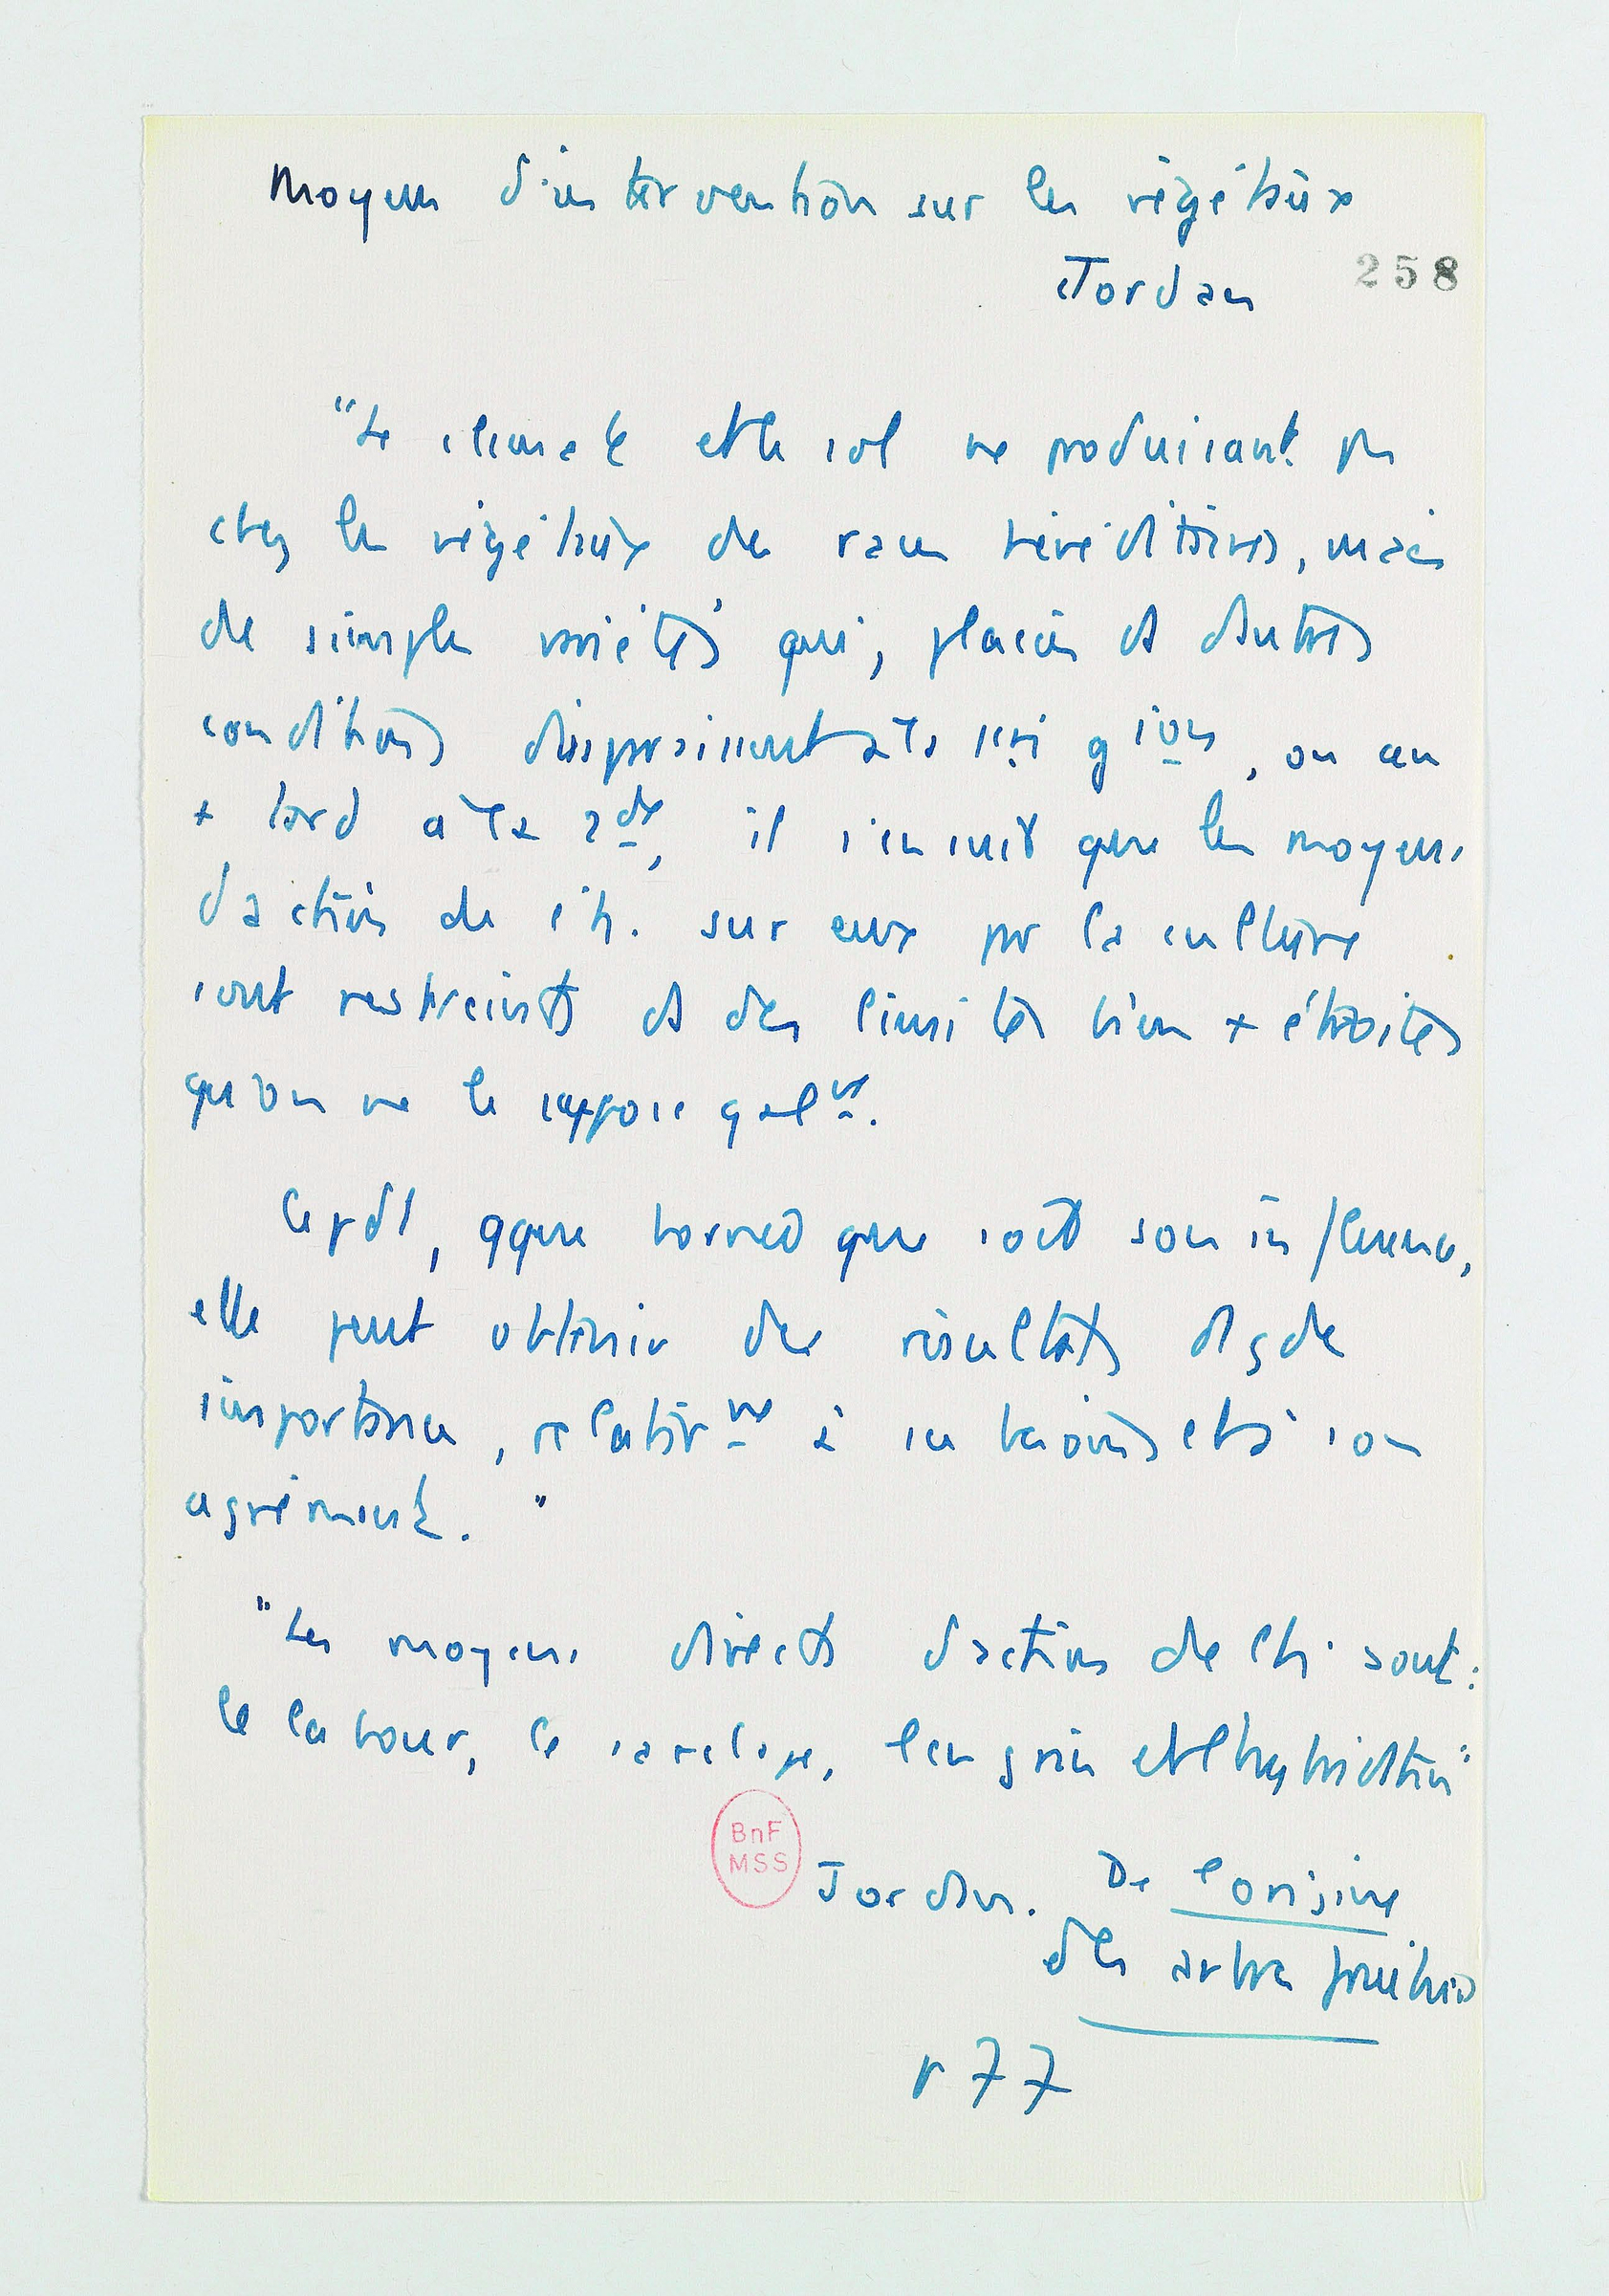 Moyens d'intervention sur les végétaux
Jordan
258
"Le climat et le sol ne produisant pas
chez les végétaux des races héréditaires, mais
de simples variétés qui, placées ds d'autres
conditions disparaissent à la 1ère gion, ou au
+ tard à la 2de, il s'en suit que les moyens
d'action de l'h. sur eux pr la culture
sont restreints ds des limites bien + étroites
qu'on ne le suppose galnt.
Cepdt, qque bornée que soit son influence,
elle peut obtenir des résultats d'gde
importance, relativnt à ses besoins et à son
agrément."
"Les moyens directs d'action de l'h. sont:
le labour, le sarclage, l'engrais et l'hybridation"
BnF
MSS
Jordan. De l'origine
des arbres fruitiers
p 77